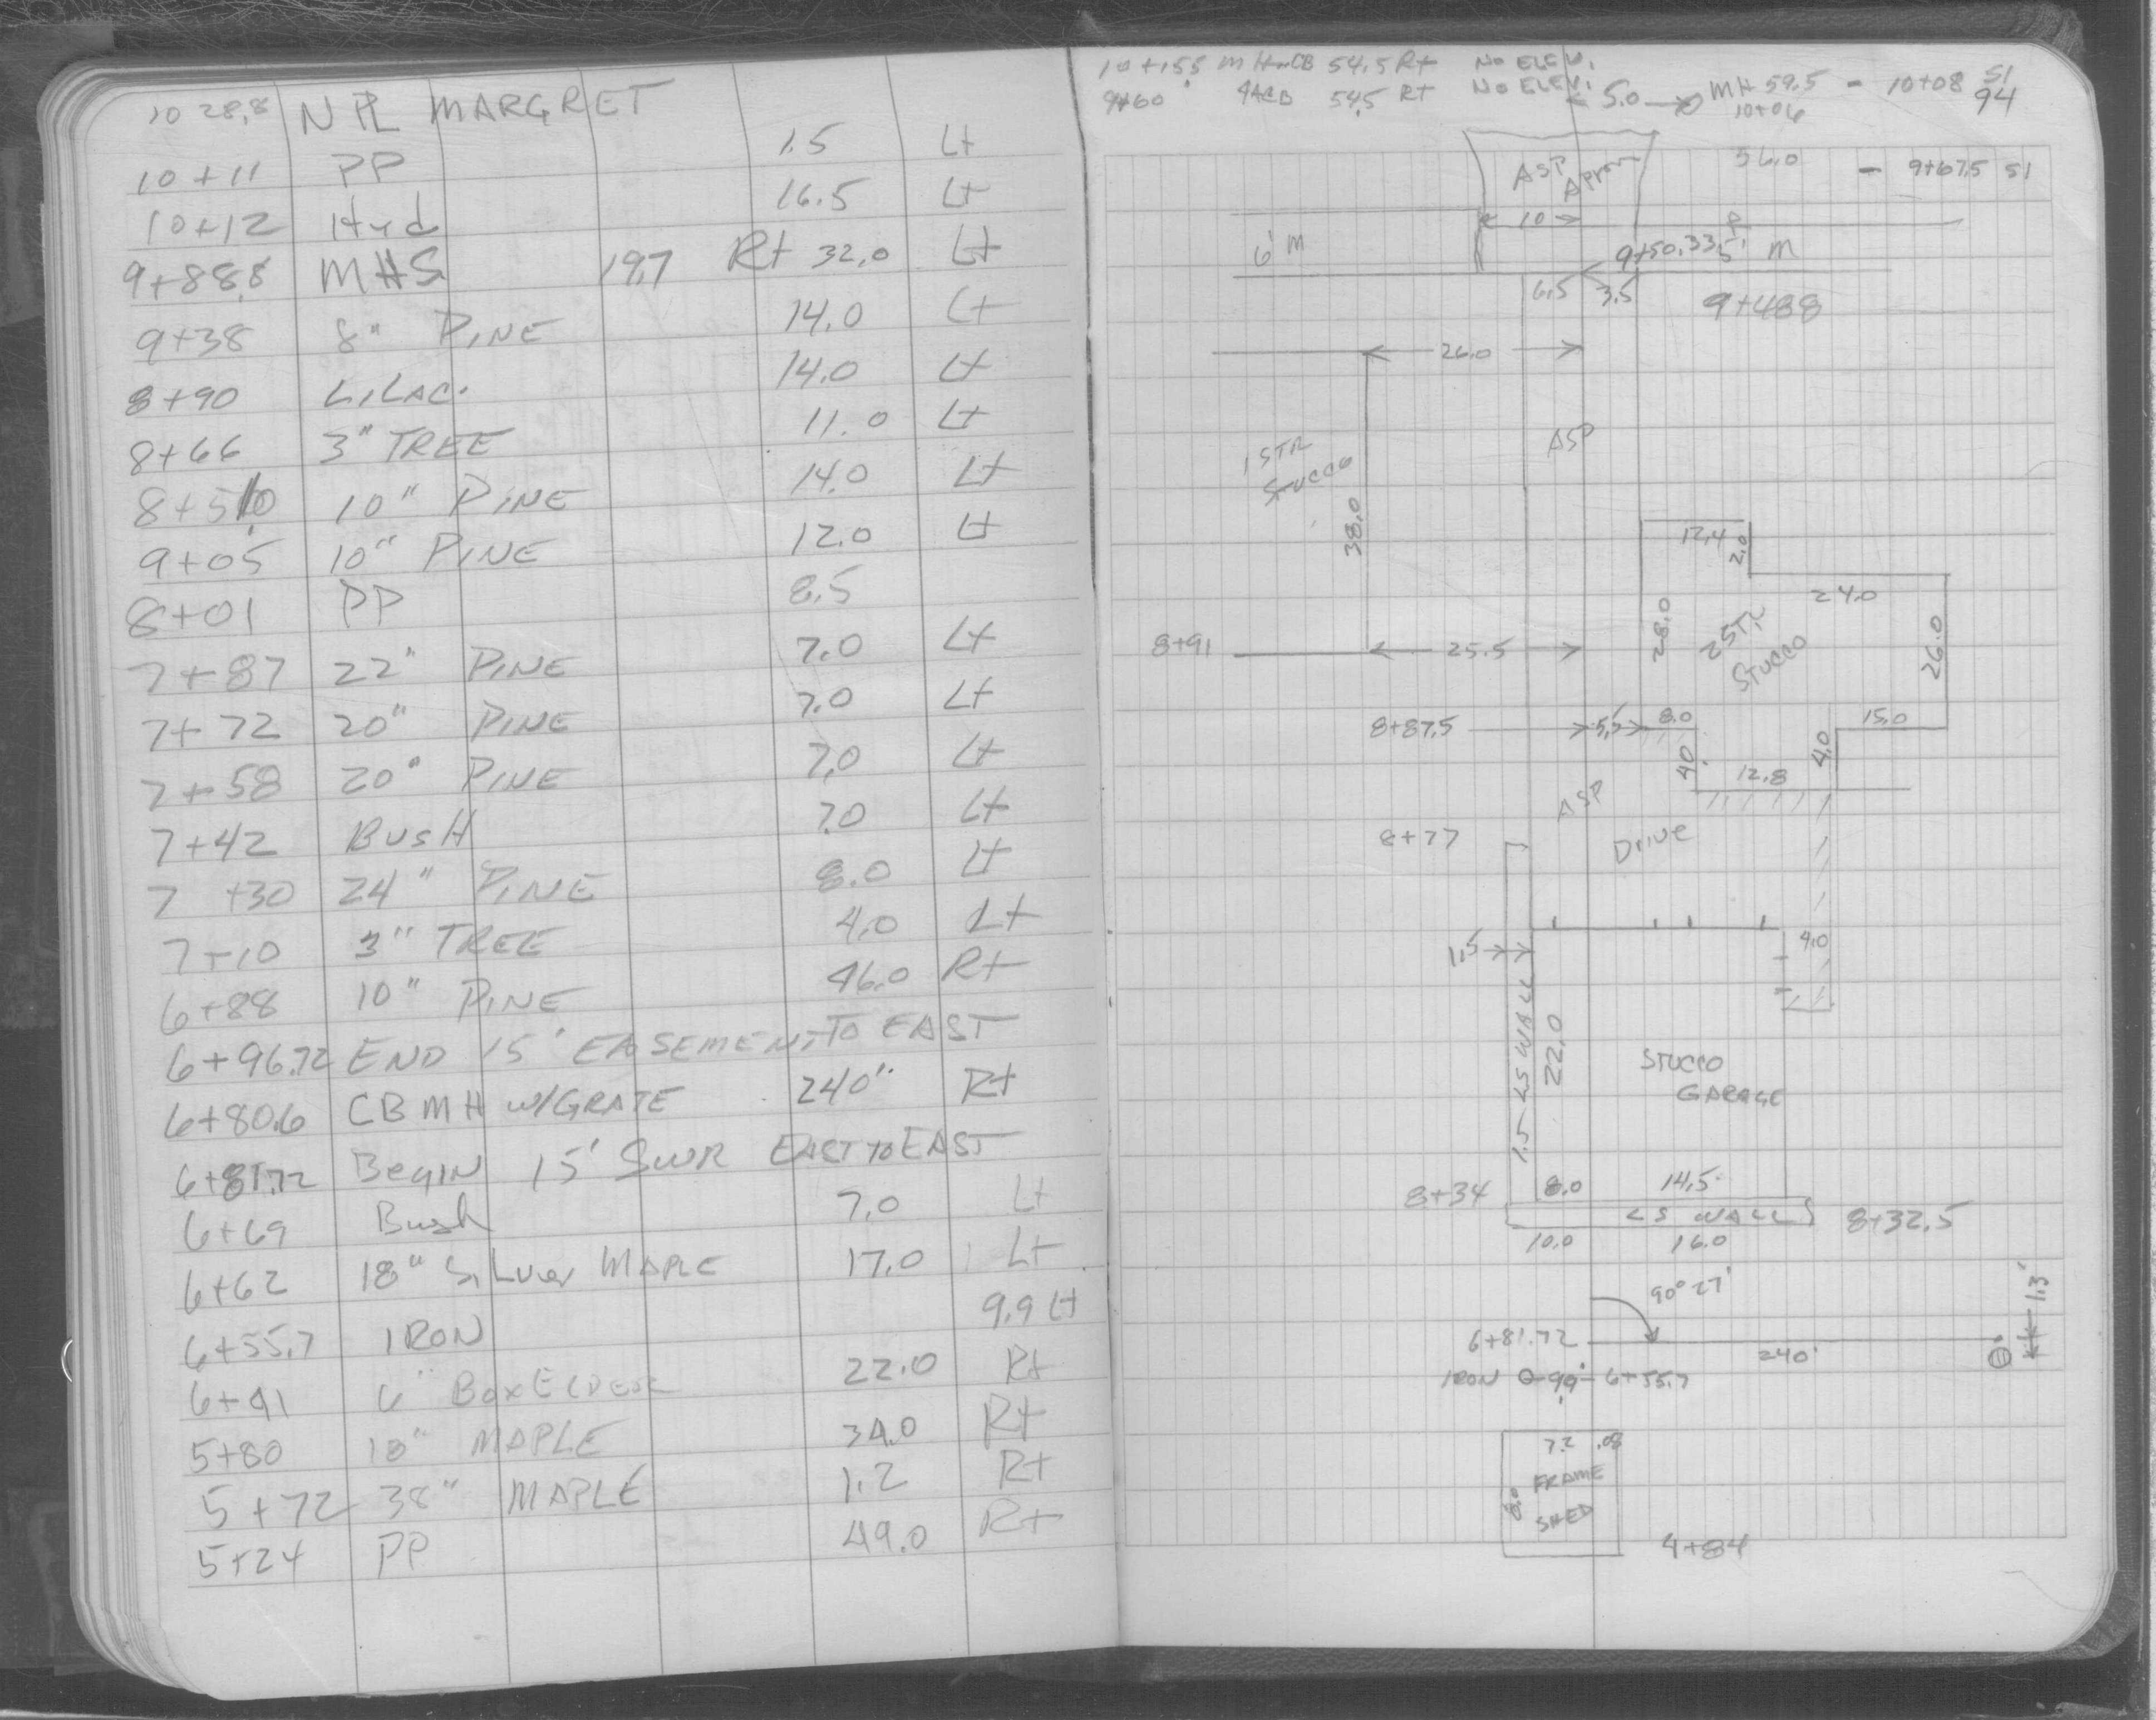 10 28.8 N PL MARGRET
10+11 PP 1.5 Lt
10+12 Hyd 16.5 Lt
9+88.8 MHS 19.7 Rt 32.0 Lt
9+38 8" PINE 14.0 Lt
8+90 LILAC. 14.0 Lt
8+66 3" TREE 11.0 Lt
10" PINE 14.0 Lt
9+05 10" PINE 12.0 Lt
8+01 PP 8.5
7+87 22" PINE 7.0 Lt
7+72 20" PINE 7.0 Lt
7+58 20" PINE 7.0 Lt
7+42 BUSH 7.0 Lt
7 +30 24" PINE 8.0 Lt
7+10 3" TREE 4.0 Lt
6+88 10" PINE 46.0 Rt
6+96.72 END 15' EASEMENT TO EAST
6+80.6 CBMH W/GRATE 240" Rt
6+81.72 BEGIN 15' SWR EAST TO EAST
6+69 Bush 7.0 Lt
6+62 18" SILVER MAPLE 17.0 Lt
6+55.7 IRON 9.9 Lt
6+41 6" BOX ELDER 22.0 Rt
5+80 18" MAPLE 34.0 Rt
5+72 38" MAPLE 1.2 Rt
5+24 PP 49.0 Rt
10+155 MH CB 54.5 Rt NO ELEV.
9+60 54.5 Rt NO ELEV.
5.0 MH 59.5 - 10+08 51
10+06 94
ASP Apron 56.0 - 9+67.5 51
10
6' M 9+50.33 5' M
6.5 3.5 9+48.8
26.0
ASP
1 STR
STUCCO
38.0
12.4 2.0
24.0
28.0 2 STR
STUCCO 26.0
8+91 25.5
8+87.5 5.5 8.0 15.0
4.0 12.8 4.0
ASP
8+77 Drive
4.0
1.5
1.5 LS WALL
22.0
STUCCO
GARAGE
8+34 8.0 14.5
LS WALL 8+32.5
10.0 16.0
90° 27'
6+81.72 240' 1.3'
IRON 9.9 6+55.7
7.2 .08
FRAME
8.0 SHED
4+84